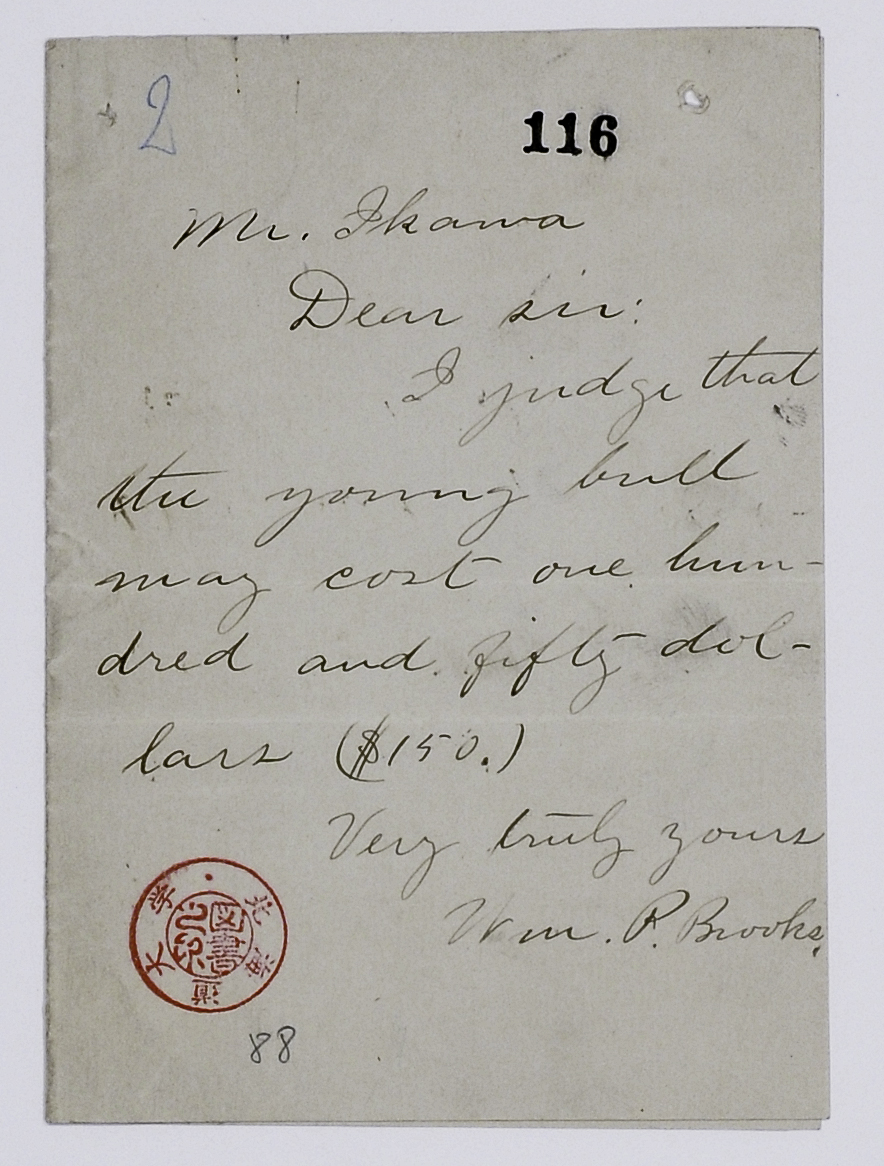 2
116
Mr. Ikawa
Dear sir:
I judge that
the young bull
may cost one hun-
dred and fifty dol-
lars ($150.)
Very truly yours
Wm. P. Brooks.
北海道大学
図書
88